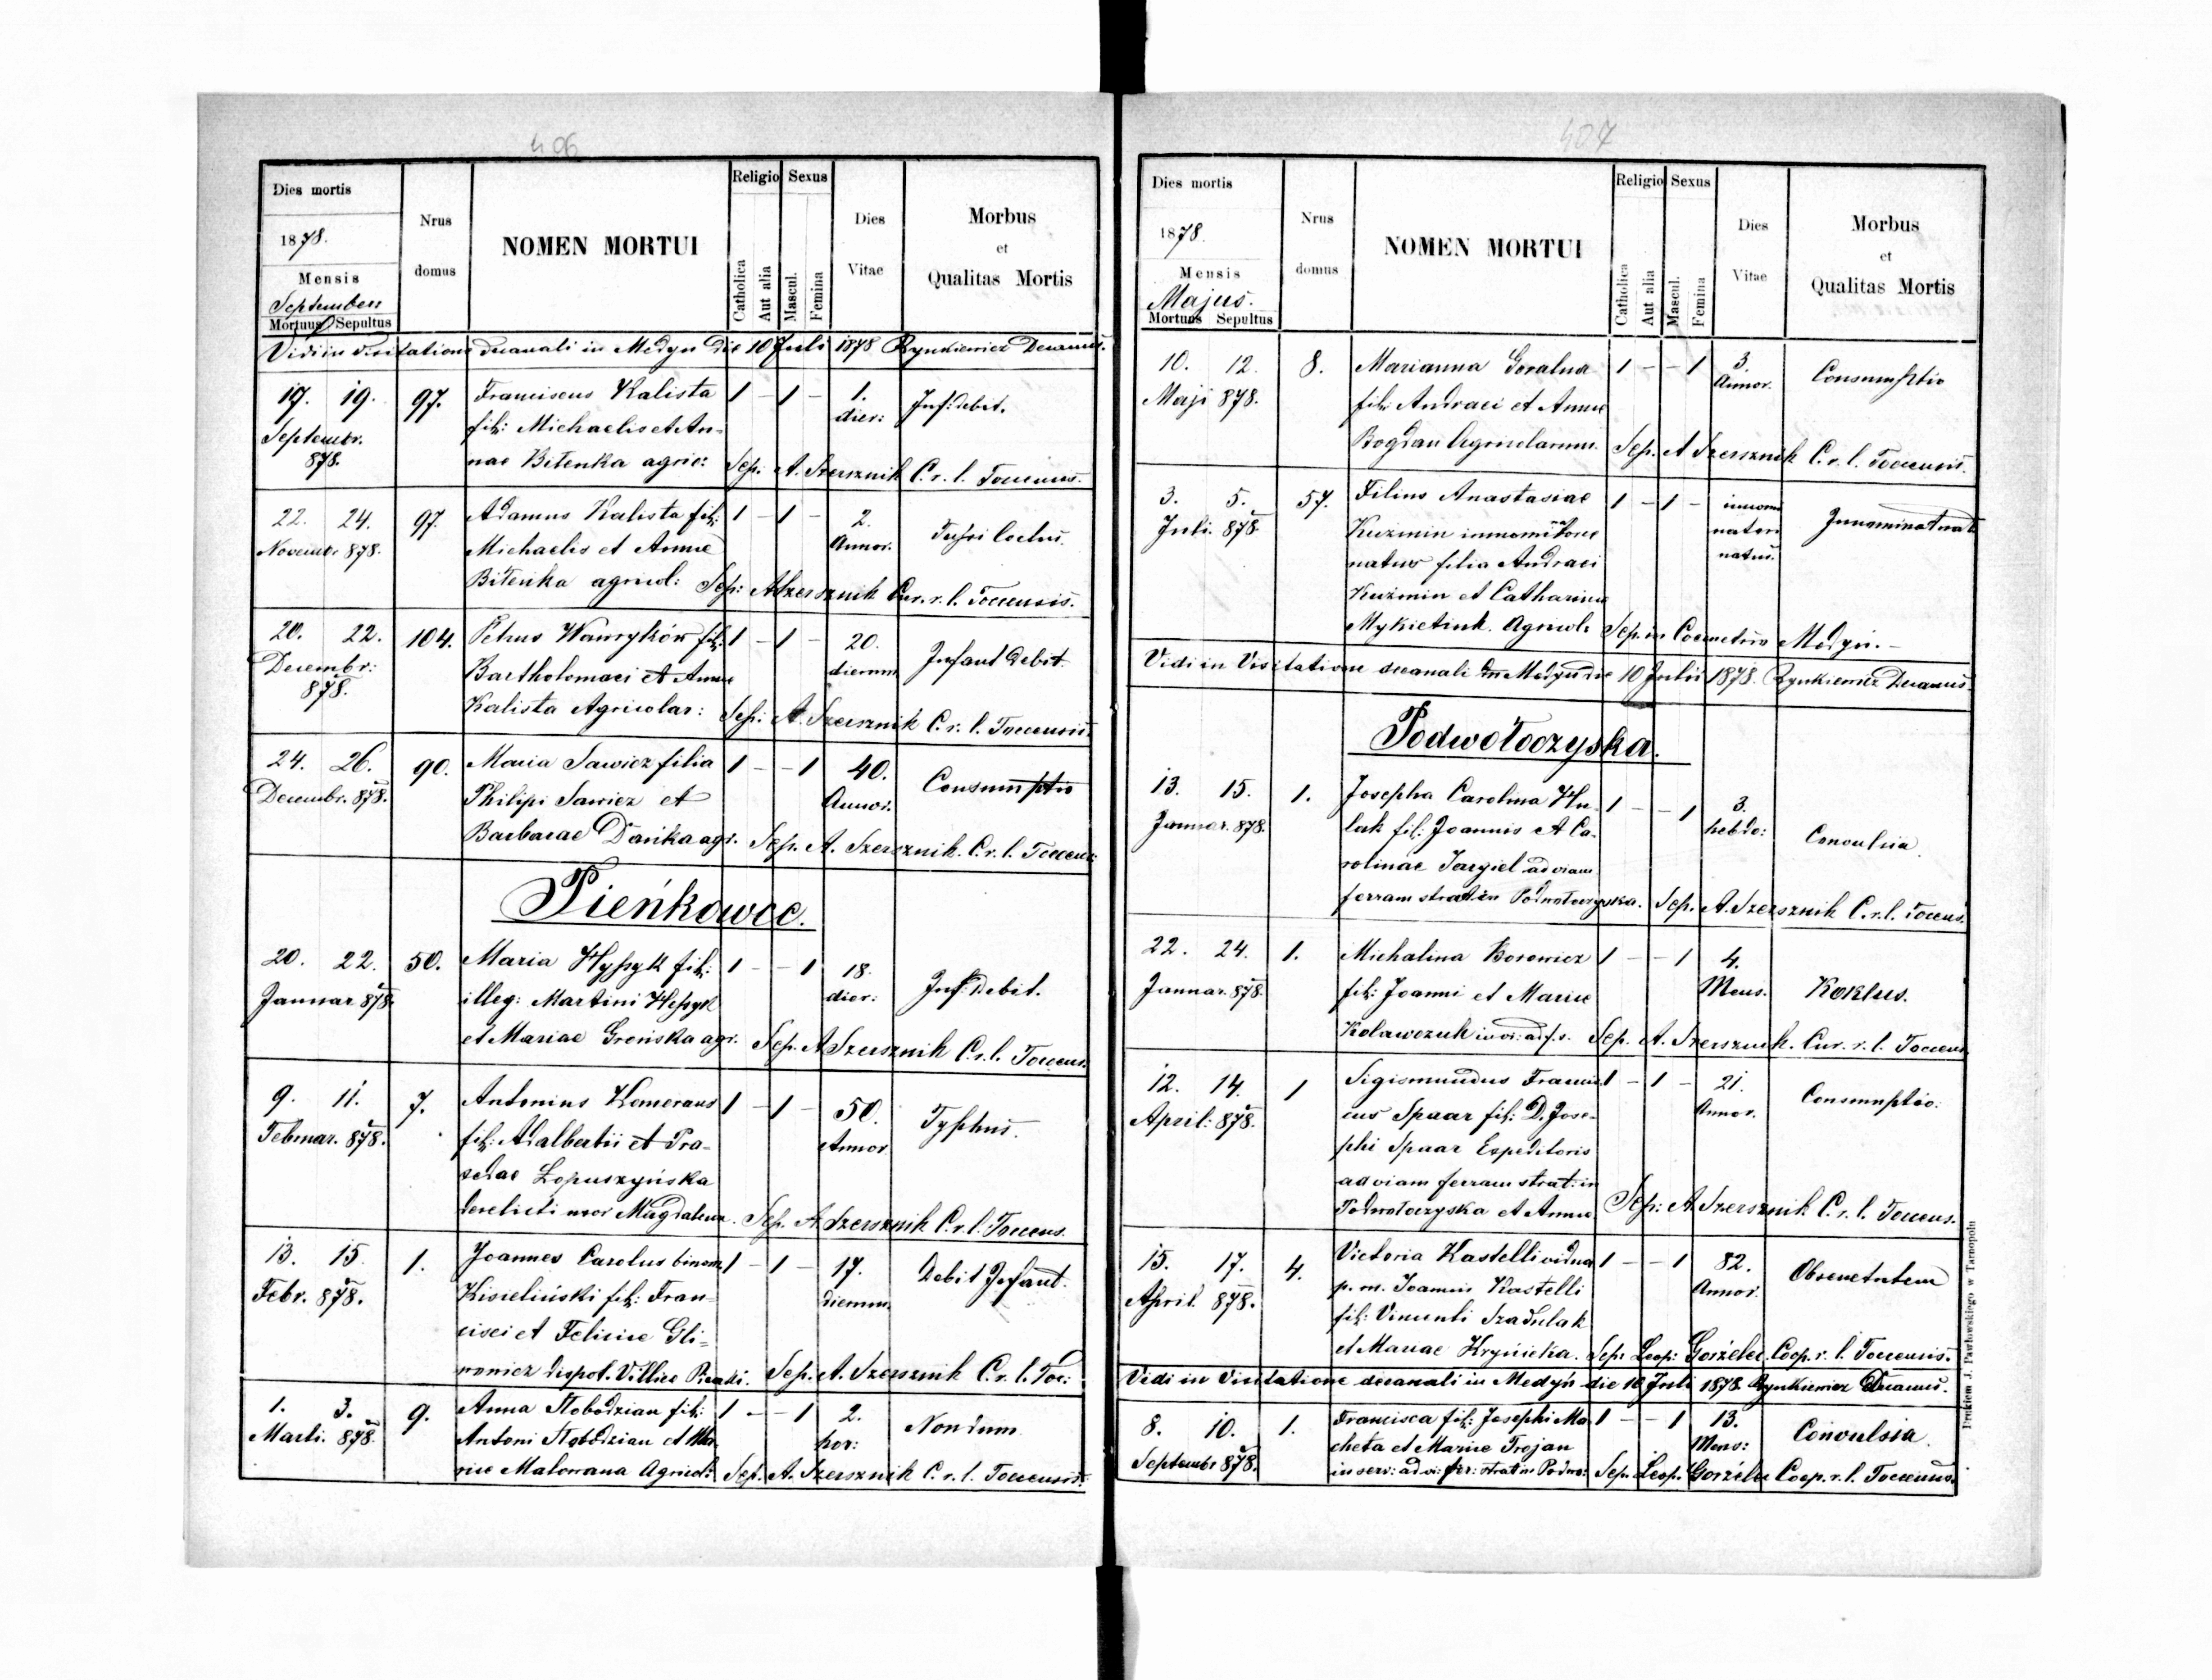 406
Dies mortis
1878.
Mensis
September
Mortuus Sepultus
Nrus
domus
NOMEN MORTUI
Religio
Catholica
Aut alia
Sexus
Mascul.
Femina
Dies
Vitae
Morbus
et
Qualitas Mortis
Vidi in visitatione decanali in Medyn die 10 Juli 1878 Rynkiewicz Decanus.
17. 19. 97. Franciscus Kalista 1 - 1 - 1. Inf: debit.
Septembr. fil: Michaelis et An- dier:
878. nae Bitenka agric: Sep. A. Szersznik C. r. l. Toccensis.
22. 24. 97. Adamus Kalista fil: 1 - 1 - 2.
Novembr. 878. Michaelis et Annae Annor.
Bitenka agricol: Sep: A Szersznik Cur. r. l. Toccensis.
20. 22. 104. Petrus Wawryków fil: 1 - 1 - 20. Infant debit.
Decembr: Bartholomaei et Annae dierum
878. Kalista Agricolar: Sep: A. Szersznik C. r. l. Toccensis.
24. 26. 90. Maria Sawicz filia 1 - - 1 40. Consumptio
Decembr. 878. Philipi Sawicz et Annor.
Barbarae Dańka agr. Sep. A. Szersznik. C. r. l. Toccens:
Pieńkowce.
20. 22. 50. Maria Hyszyk fil: 1 - - 1 18. Inf: Debit.
Januar 878. illeg: Martini Heszyk dier:
et Mariae Grońska agr. Sep. A Szersznik C. r. l. Toccens.
9. 11. 7. Antonius Komeraus 1 - 1 - 50. Typhus.
Februar. 878. fil: Adalbertii et Pra- Annor
xedae Łopuszyńska
derelicti uxor Magdalena. Sep. A Szersznik C. r. l. Toccens.
13. 15. 1. Joannes Carolus binom 1 - 1 - 17. Debit Infant.
Febr. 878. Kisieliński fil: Fran- dierum
cisci et Feliciae Gli-
nowicz dispot. Villice Pienki. Sep. A. Szersznik C. r. l. Toc:
1. 3. 9. Anna Słobodzian fil: 1 - - 1 2. Nondum
Marti. 878. Antoni Słobodzian et Ma- hor:
riae Malowana Agricol: Sep. A. Szersznik C. r. l. Toccensis.
407
Dies mortis
1878.
Mensis
Majus.
Mortuus Sepultus
Nrus
domus
NOMEN MORTUI
Religio
Catholica
Aut alia
Sexus
Mascul.
Femina
Dies
Vitae
Morbus
et
Qualitas Mortis
10. 12. 8. Marianna Goralna 1 - - 1 3. Consumptio
Maji 878. fil: Andraei et Annae Annor.
Bogdan Agricolarum. Sep. A Szersznik C. r. l. Toccensis.
3. 5. 57. Filius Anastasiae 1 - 1 -
Juli. 878. Kuźmin innominatore natore
natus filia Andraei natus.
Kuźmin et Catharinae
Mykietiuk. Agricol: Sep. in Coemetrio Medyń. -
Vidi in Visitatione decanali in Medyn die 10 Julii 1878. Rynkiewicz Decanus.
Podwołoczyska.
13. 15. 1. Josepha Carolina Hu- 1 - - 1 3. Convulsia
Januar. 878. lak fil: Joannis et Ca- hebdo:
rolinae Jargiel ad viam
ferram strat. in Podwołoczyska. Sep. A. Szersznik C. r. l. Toccens.
22. 24. 1. Michalina Borowicz 1 - - 1 4. Koklus.
Januar. 878. fil: Joanni et Mariae Mens.
Kolawczuk Sep. A. Szersznik. Cur. r. l. Toccens
12. 14. 1 Sigismundus Francis 1 - 1 - 21. Consumptio.
April: 878. cus Spaar fil: D. Jose- Annor.
phi Spaar Expeditoris
ad viam ferram strat: in
Podwołoczyska et Annae. Sep: A. Szersznik C. r. l. Toccens.
15. 17. 4. Victoria Kastelli vidua 1 - - 1 82.
April. 878. p. m. Joannis Kastelli Annor.
fil: Vincenti Szadulak
et Mariae Krynicka. Sep: Leop: Gorżelec. Coop. r. l. Toccensis.
Vidi in Visitatione decanali in Medyń die 10 Juli 1878. Rynkiewicz Decanus.
8. 10. 1. Francisca fil: Josephi Ma 1 - - 1 13. Convulsia.
Septembr 878. cheta et Mariae Trojan Mens:
in serv: ad vi: fer: strat in Podwo: Sep. Leop. Gorżelec Coop. r. l. Toccensis.
Drukiem J. Pawłowskiego w Tarnopolu